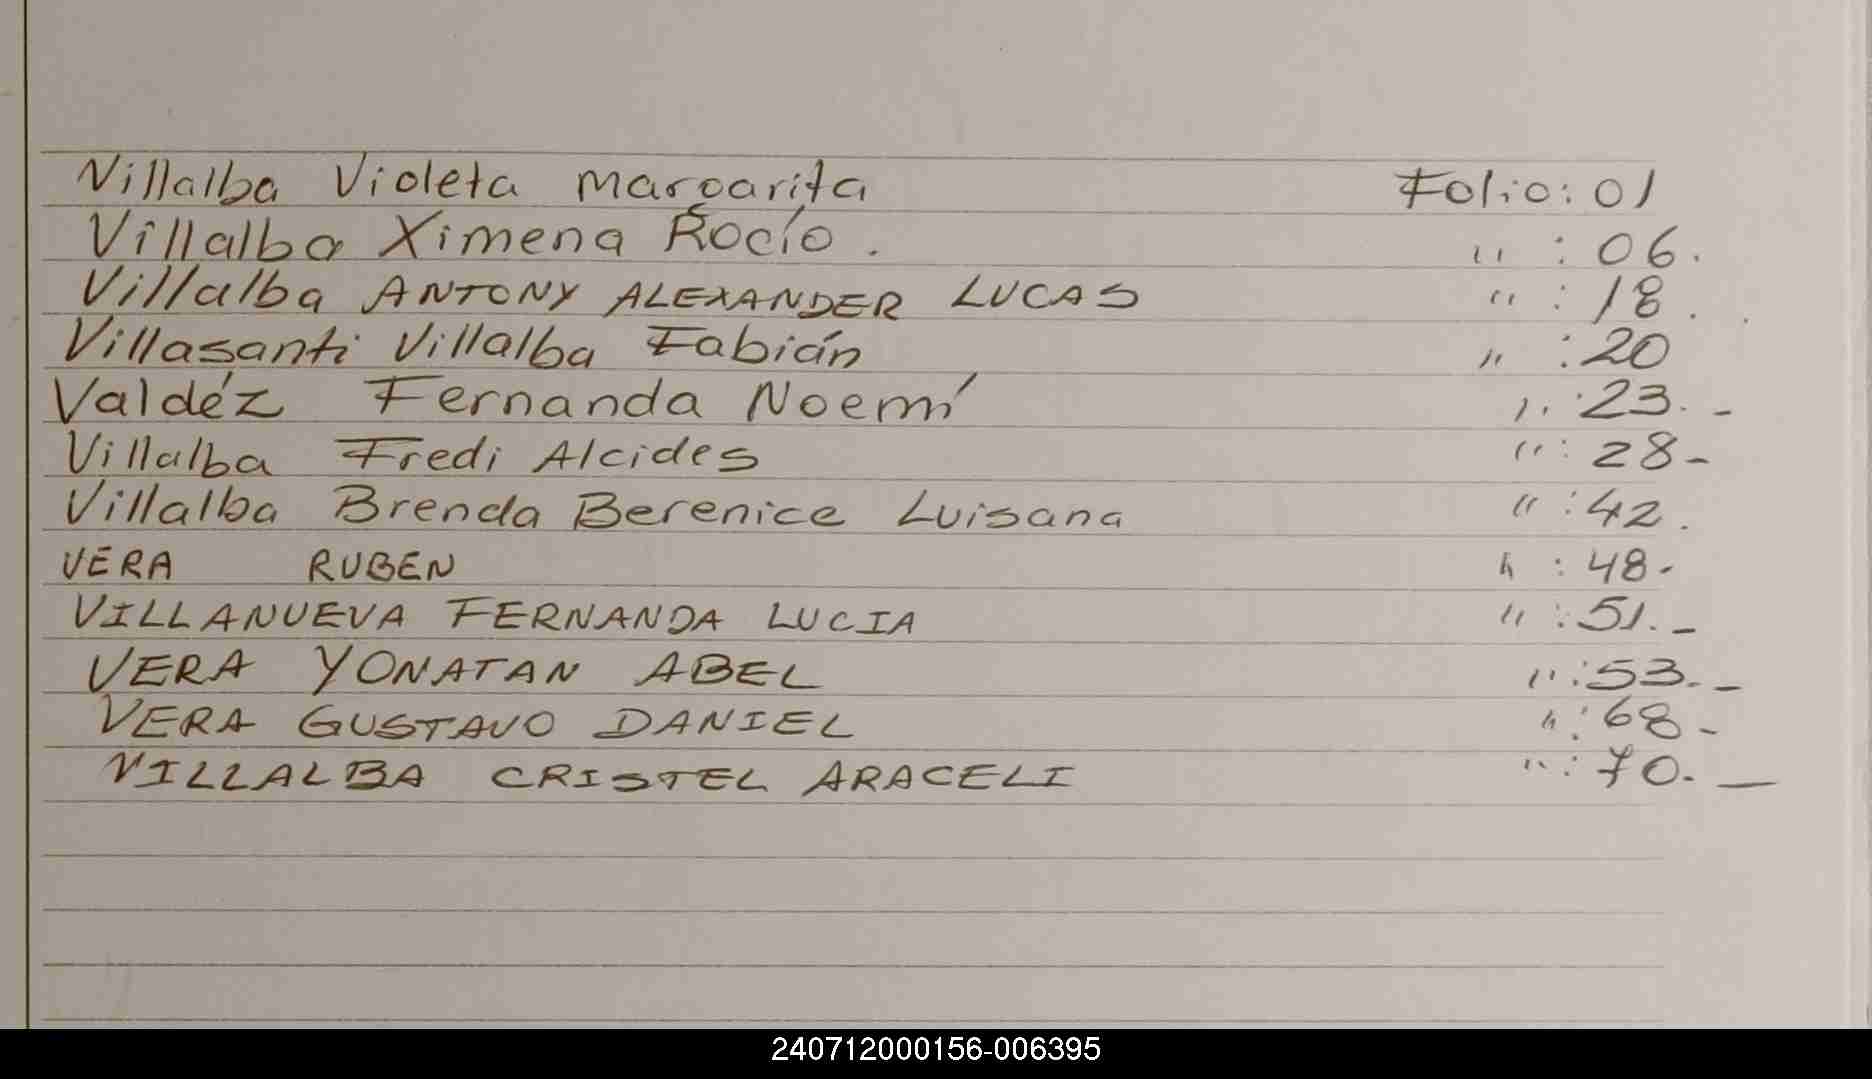 Villalba Violeta Margarita Folio: 01
Villalba Ximena Rocío. " : 06.
Villalba ANTONY ALEXANDER LUCAS " : 18.
Villasanti Villalba Fabián " : 20
Valdéz Fernanda Noemí " : 23. -
Villalba Fredi Alcides " : 28-
Villalba Brenda Berenice Luisana " : 42.
VERA RUBEN " : 48.
VILLANUEVA FERNANDA LUCIA " : 51. -
VERA YONATAN ABEL " : 53. -
VERA GUSTAVO DANIEL " : 68-
VILLALBA CRISTEL ARACELI " : 70. -
240712000156-006395